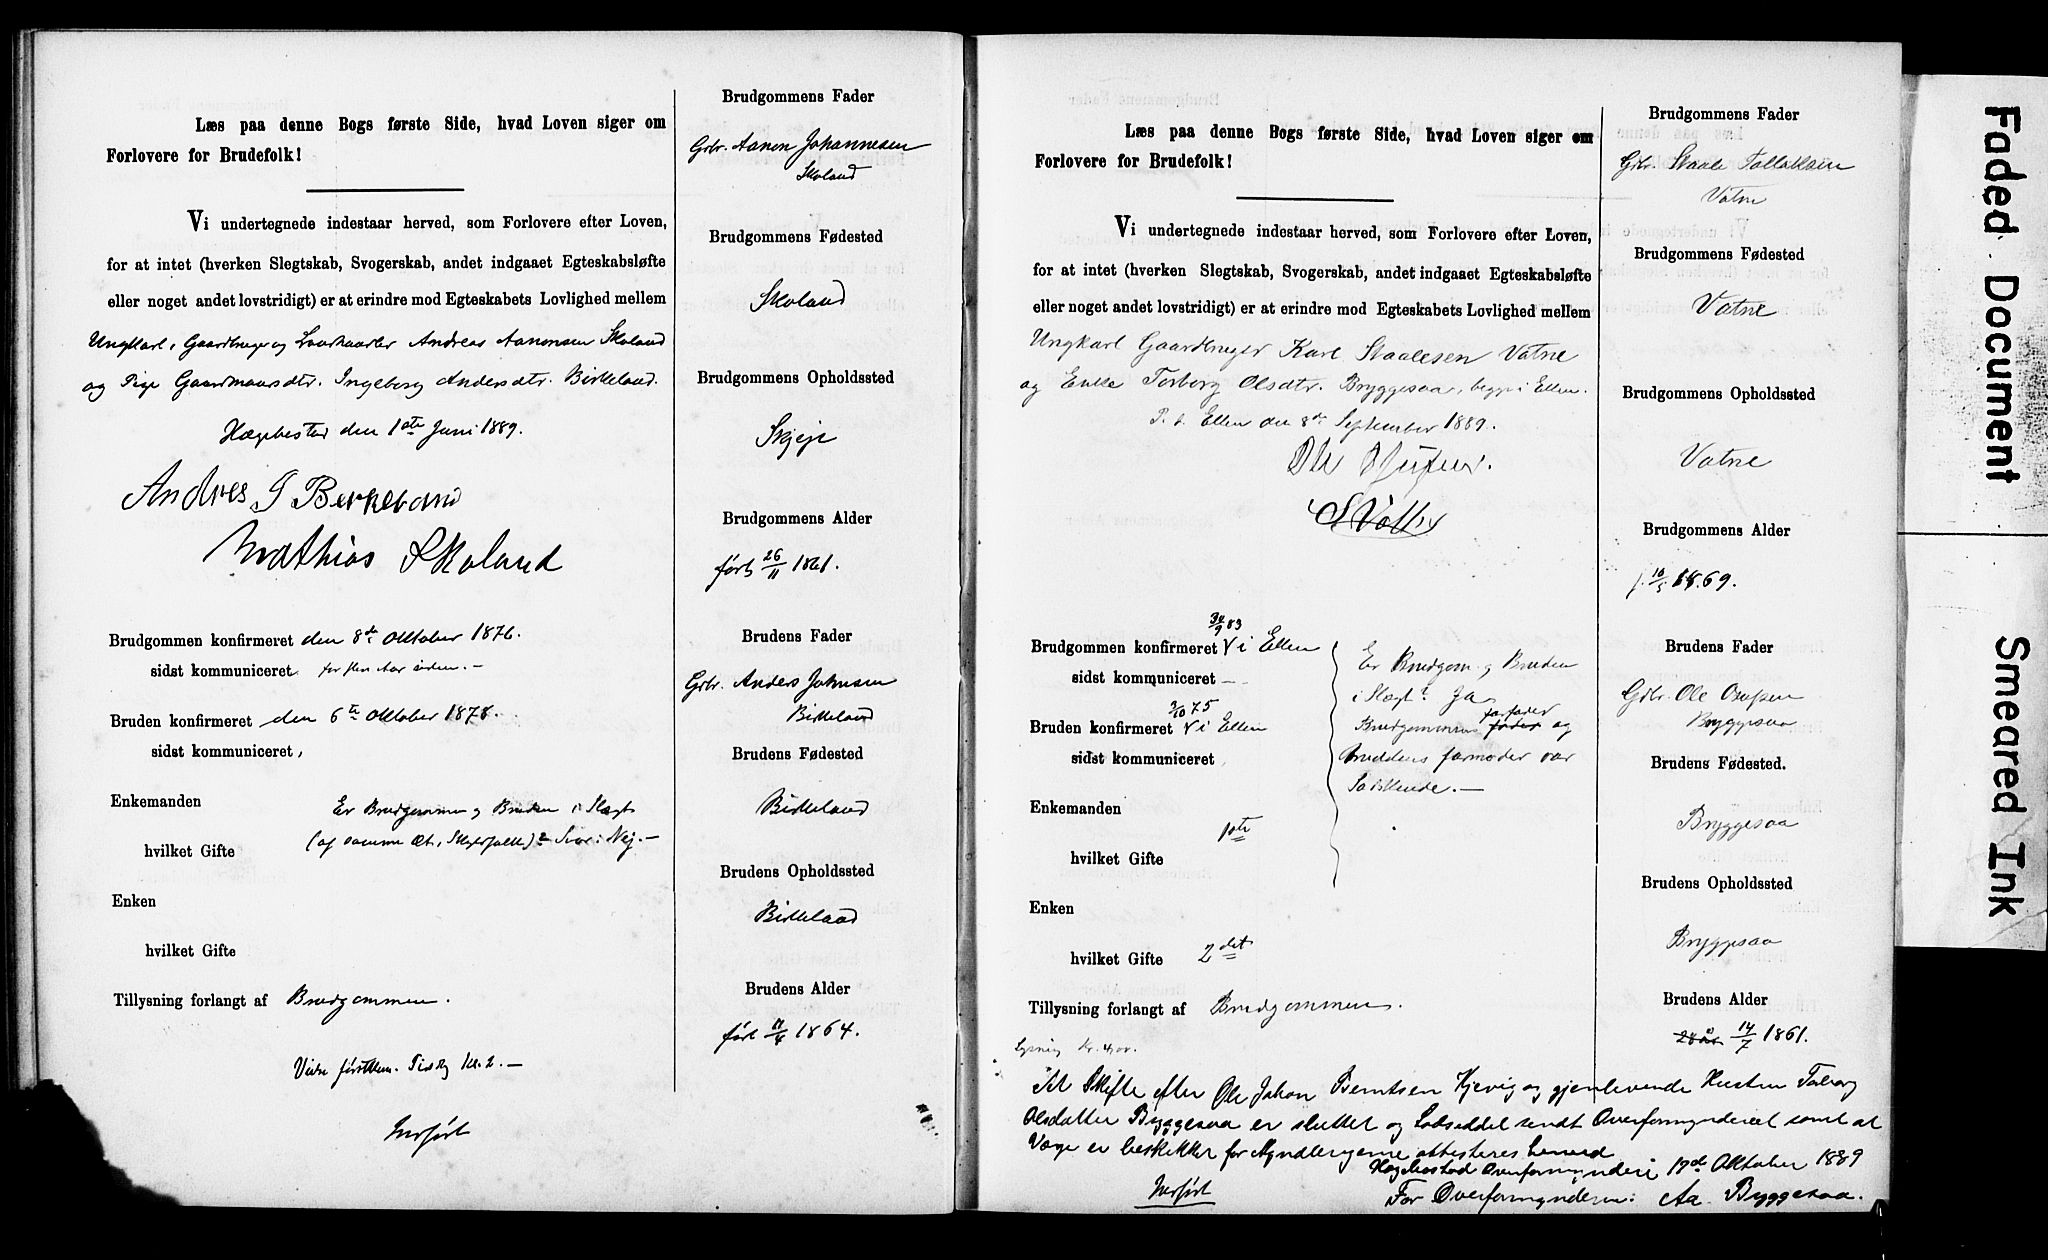 Læs paa denne Bogs første Side, hvad Loven siger om
Forlovere for Brudefolk!
Vi undertegnede indestaar herved, som Forlovere efter Loven,
for at intet (hverken Slegtskab, Svogerskab, andet indgaaet Egteskabsløfte
eller noget andet lovstridigt) er at erindre mod Egteskabets Lovlighed mellem
Ungkarl, Gaardbruger og Andreas Aanensen Skoland
og Pige Gaardmansdtr. Ingeborg Andersdtr. Birkeland.
Hægebostad den 1ste Juni 1889.
Andres J Berkeland
Mathias Skoland
Brudgommen konfirmeret den 8de Oktober 1876.
sidst kommuniceret for flere Aar siden. –
Bruden konfirmeret den 6te Oktober 1878.
sidst kommuniceret,
Enkemanden
Er Brudgommen og Bruden i Slægt
(af samme Æt, Skyldfolk)? – Svar: Nej. –
hvilket Gifte
Enken
hvilket Gifte
Tillysning forlangt af Brudgommen.
Vies førstkom. Tirsdag Kl. 2. –
Indført
Brudgommens Fader
Gdbr. Aanen Johannesen
Skoland
Brudgommens Fødested
Skoland
Brudgommens Opholdssted
Skjeje
Brudgommens Alder
født 26/11 1861.
Brudens Fader
Gdbr. Anders Johnsen
Birkeland
Brudens Fødested
Birkeland
Brudens Opholdssted
Birkeland
Brudens Alder
født 11/4 1864.
Læs paa denne Bogs første Side, hvad Loven siger om
Forlovere for Brudefolk!
Vi undertegnede indestaar herved, som Forlovere efter Loven,
for at intet (hverken Slegtskab, Svogerskab, andet indgaaet Egteskabsløfte
eller noget andet lovstridigt) er at erindre mod Egteskabets Lovlighed mellem
Ungkarl Gaardbruger Karl Staalesen Vatne
og Enke Torborg Olsdtr. Bryggesaa, begge i Eiken.
P. t. Eiken den 8de September 1889.
Brudgommen konfirmeret 30/9 83 i Eiken
sidst kommuniceret –
Bruden konfirmeret 3/10 75 i Eiken
sidst kommuniceret
Er Brudgom og Bruden
i Slægt? Ja
Brudgommens fader farfader og
Bruddens farmoder var
Sødskende. –
Enkemanden
1ste
hvilket Gifte
Enken
hvilket Gifte 2det
Tillysning forlangt af Brudgommen.
Lysning Kr.
At Skifte efter Ole Johan Berntsen Kjevig og gjenlevende Hustru Toborg
Olsdatter Byggesaa er sluttet og Lodseddel sendt Overformynderiet samt at
Værge er beskikket for Myndlingerne attesteres herved
Hægebostad Overformynderi 17de Oktober 1889
For Overformynderen: Aa. Byggesaa.
Indført
Brudgommens Fader
Gdbr. Staale Tallaksen
Vatne
Brudgommens Fødested
Vatne
Brudgommens Opholdssted
Vatne
Brudgommens Alder
f. 10/5 1869.
Brudens Fader
Gdbr. Ole Osufsen
Bryggesaa
Brudens Fødested.
Bryggesaa
Brudens Opholdssted
Bryggesaa
Brudens Alder
28 år 14/7 1861.
Faded Document
Smeared Ink